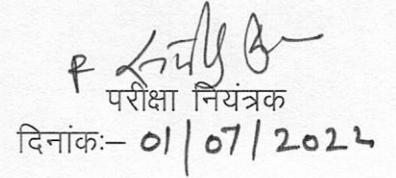 परीक्षा नियंत्रक
दिनांकः– 01/07/2022